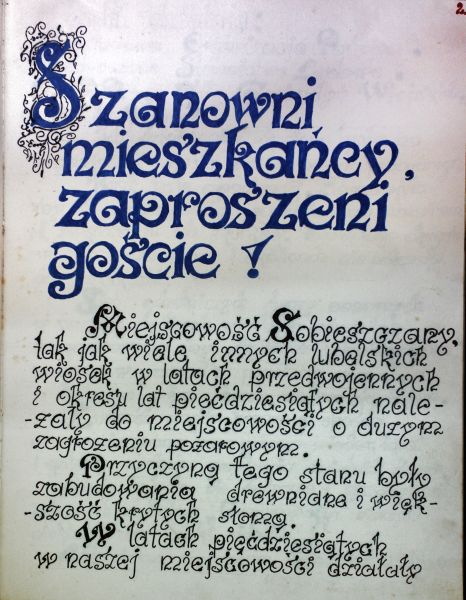 2.
Szanowni
mieszkańcy,
zaproszeni
goście !
Miejscowość Sobieszczany,
tak jak wiele innych lubelskich
wiosek w latach przedwojennych
i okresu lat pięćdziesiątych nale-
-żały do miejscowości o dużym
zagrożeniu pożarowym.
Przyczyną tego stanu były
zabudowania drewniane i więk-
-szość krytych słomą.
W latach pięćdziesiątych
w naszej miejscowości działały